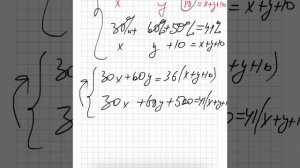 x y 10 = x+y+10
30% + 60% + 50% = 41%
x y +10 = x+y+10
30x + 60y = 36(x+y+10)
30x + 60y + 500 = 41(x+y+10